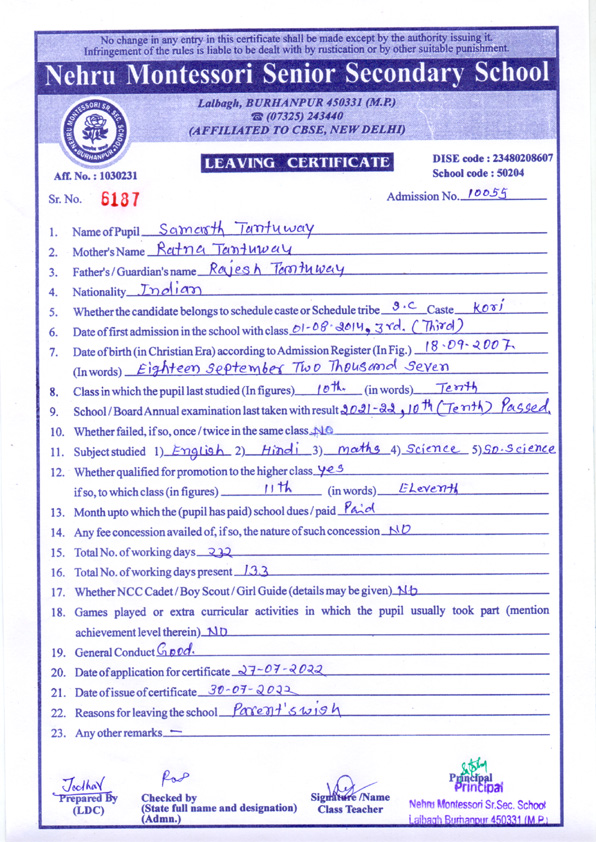 No change in any entry in this certificate shall be made except by the authority issuing it.
Infringement of the rules is liable to be dealt with by rustication or by other suitable punishment.
Nehru Montessori Senior Secondary School
Lalbagh, BURHANPUR 450331 (M.P.)
☎ (07325) 243440
(AFFILIATED TO CBSE, NEW DELHI)
NEHRU MONTESSORI SR. SEC. SCHOOL
BURHANPUR
LEAVING CERTIFICATE
DISE code : 23480208607
School code : 50204
Aff. No. : 1030231
Sr. No. 6187
Admission No. 10055
1. Name of Pupil Samarth Tantuway
2. Mother's Name Ratna Tantuway
3. Father's / Guardian's name Rajesh Tantuway
4. Nationality Indian
5. Whether the candidate belongs to schedule caste or Schedule tribe S.C Caste Kori
6. Date of first admission in the school with class 01-08-2014, 3rd. (Third)
7. Date of birth (in Christian Era) according to Admission Register (In Fig.) 18-09-2007
(In words) Eighteen September Two Thousand Seven
8. Class in which the pupil last studied (In figures) 10th. (in words) Tenth
9. School / Board Annual examination last taken with result 2021-22, 10th (Tenth) Passed.
10. Whether failed, if so, once / twice in the same class NO
11. Subject studied 1) English 2) Hindi 3) maths 4) Science 5) SO. Science
12. Whether qualified for promotion to the higher class yes
if so, to which class (in figures) 11th (in words) ELeventh
13. Month upto which the (pupil has paid) school dues / paid Paid
14. Any fee concession availed of, if so, the nature of such concession NO
15. Total No. of working days 232
16. Total No. of working days present 133
17. Whether NCC Cadet / Boy Scout / Girl Guide (details may be given) No
18. Games played or extra curricular activities in which the pupil usually took part (mention
achievement level therein) NO
19. General Conduct Good.
20. Date of application for certificate 27-07-2022
21. Date of issue of certificate 30-07-2022
22. Reasons for leaving the school Parent's wish
23. Any other remarks —
Prepared By
(LDC)
Checked by
(State full name and designation)
(Admn.)
Signature /Name
Class Teacher
Principal
Principal
Nehru Montessori Sr.Sec. School
Lalbagh Burhanpur 450331 (M.P.)